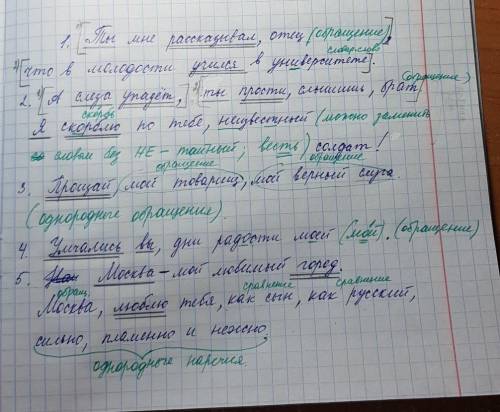 1. [Ты мне рассказывал, отец (обращение),
словар.слово
[что в молодости учился в университете].
2. [А слеза упадёт, [ты прости, слышишь, брат (обращение)
скорбь
Я скорблю по тебе, неизвестный (можно заменить
словом без НЕ - тайный; весть) солдат!
обращение обращение
3. Прощай, мой товарищ, мой верный слуга.
(однородные обращение).
4. Умчались вы, дни радости моей (мой). (обращение)
5. Москва - мой любимый город.
обращ. сравнение сравнение
Москва, люблю тебя, как сын, как русский,
сильно, пламенно и нежно,
однородные наречия.